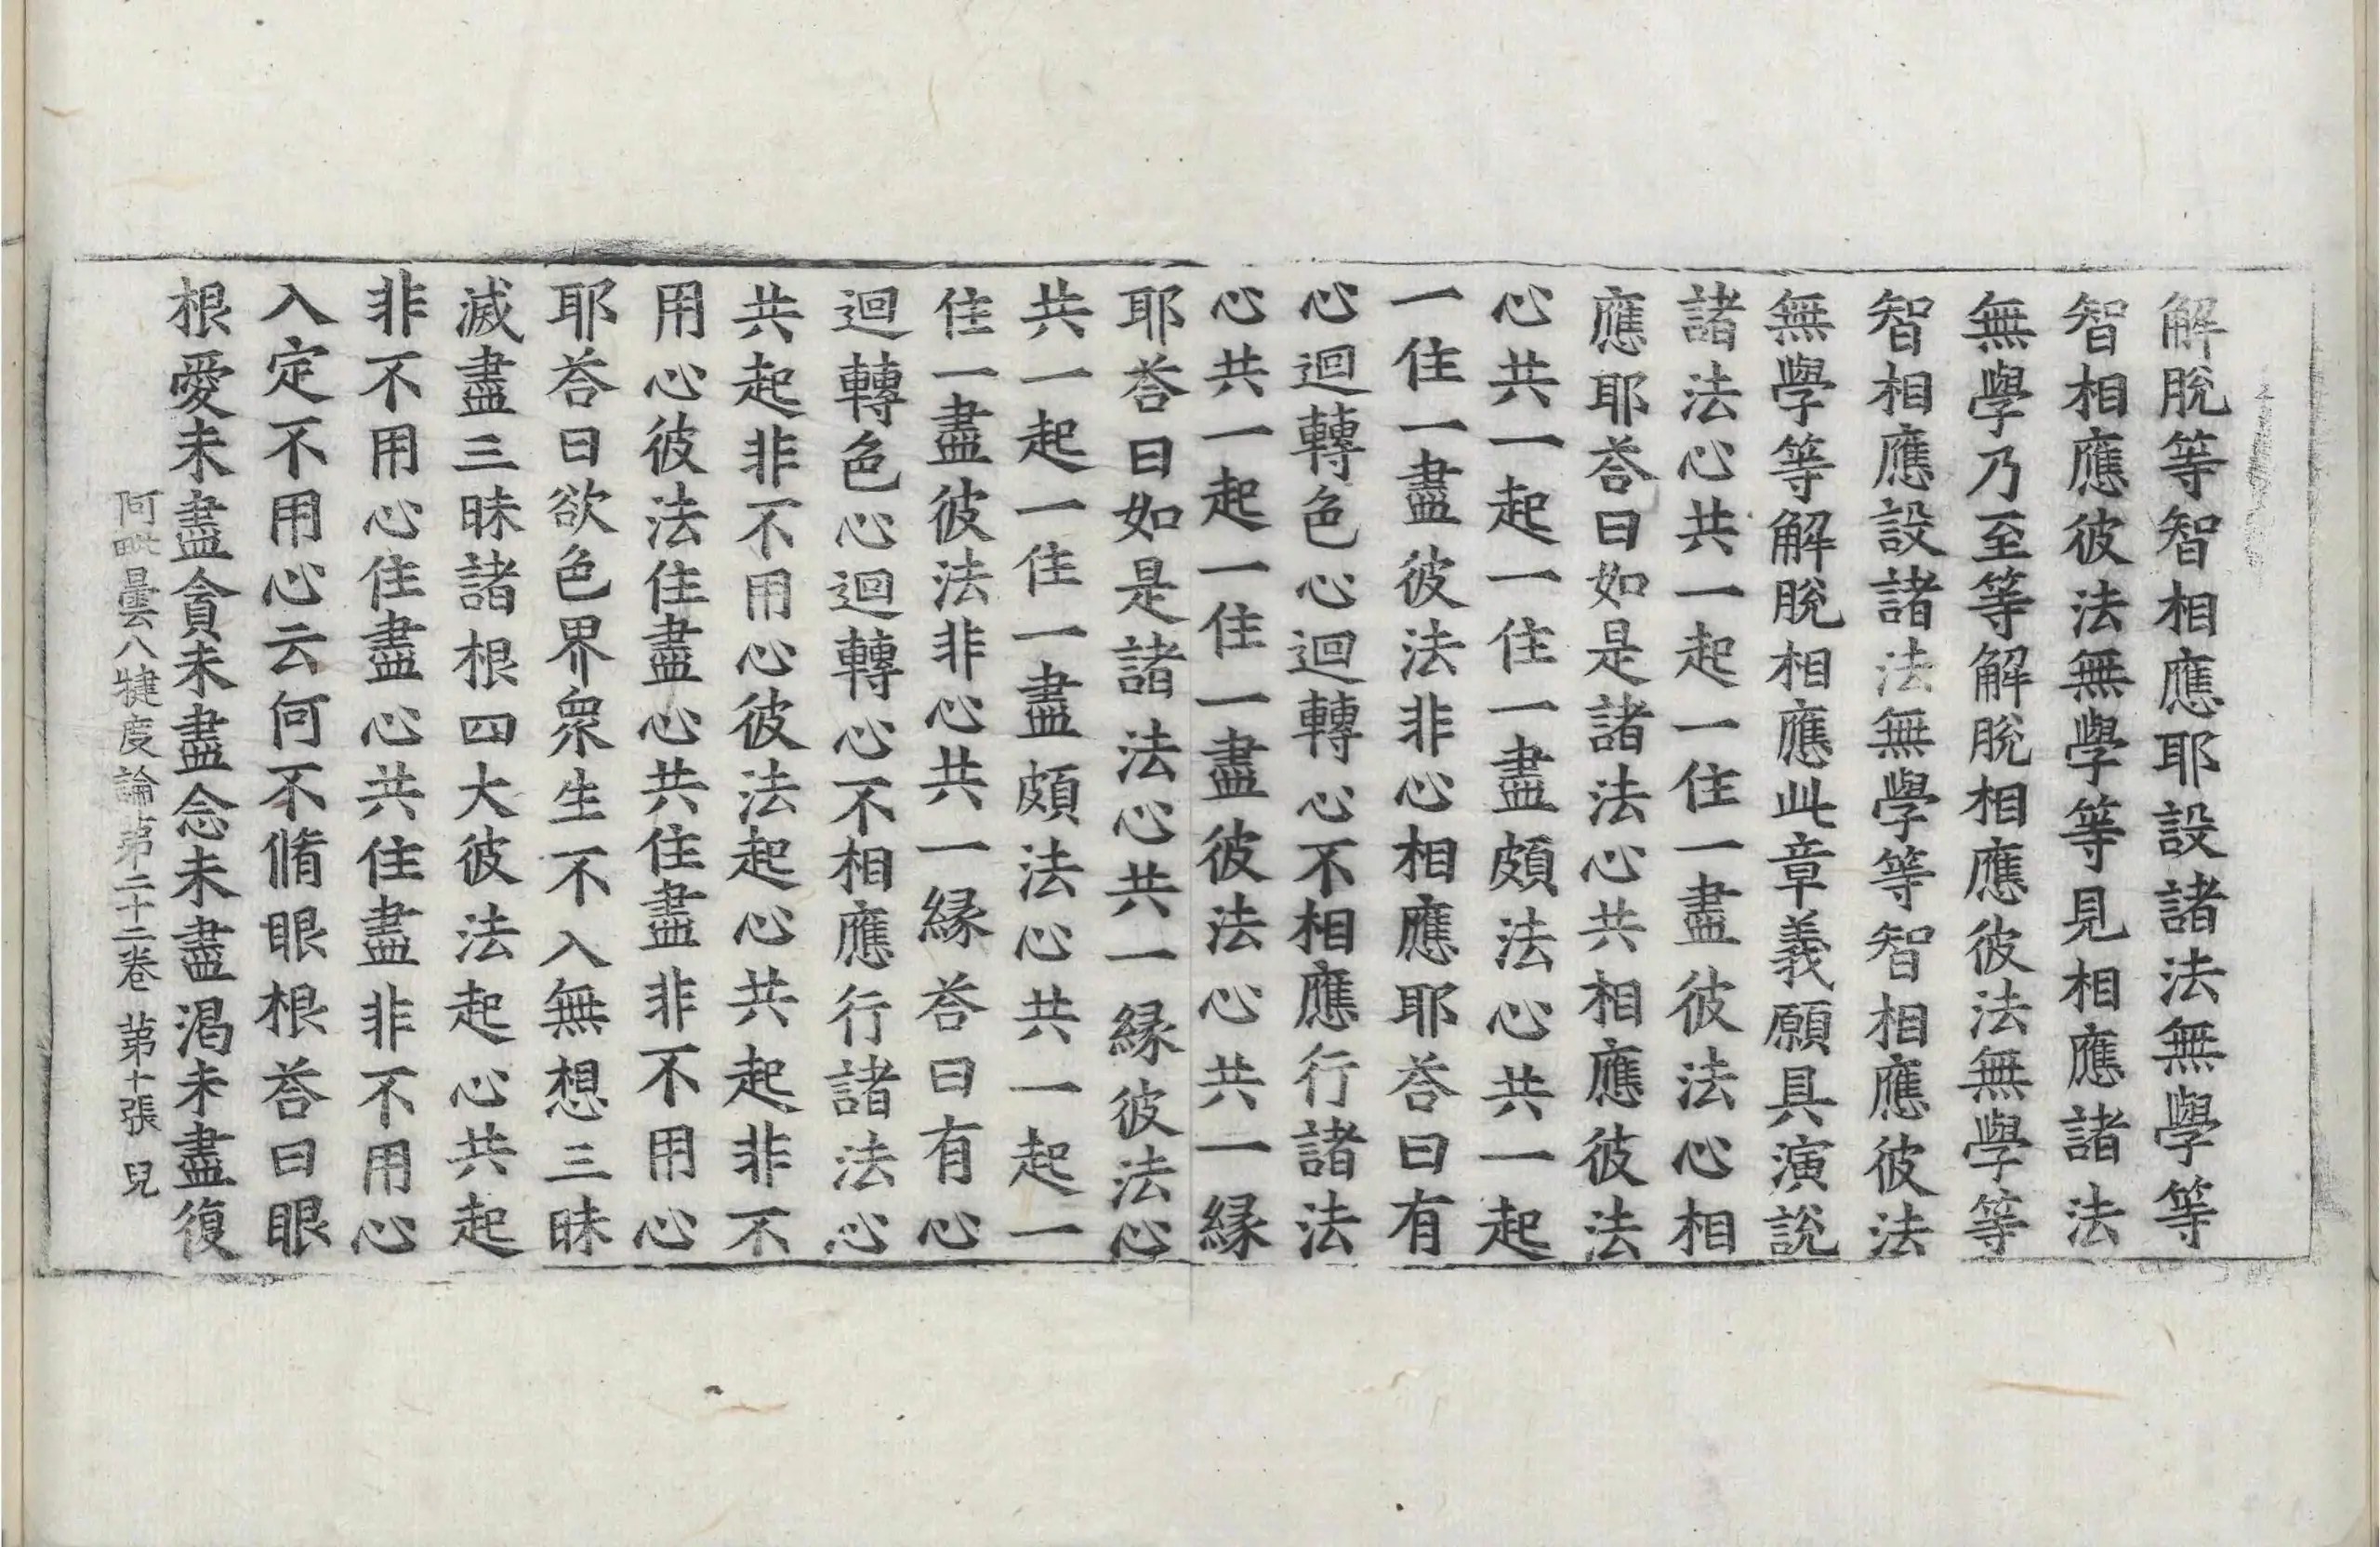 解脫等智相應耶設諸法無學等
智相應彼法無學等見相應諸法
無學乃至等解脫相應彼法無學等
智相應設諸法無學等智相應彼法
無學等解脫相應此章義願具演說
諸法心共一起一住一盡彼法心相
應耶荅曰如是諸法心共相應彼法
心共一起一住一盡頗法心共一起
一住一盡彼法非心相應耶荅曰有
心迴轉色心迴轉心不相應行諸法
心共一起一住一盡彼法心共一緣
耶荅曰如是諸法心共一緣彼法心
共一起一住一盡頗法心共一起一
住一盡彼法非心共一緣荅曰有心
迴轉色心迴轉心不相應行諸法心
共起非不用心彼法起心共起非不
用心彼法住盡心共住盡非不用心
耶荅曰欲色界衆生不入無想三昧
滅盡三昧諸根四大彼法起心共起
非不用心住盡心共住盡非不用心
入定不用心云何不脩眼根荅曰眼
根愛未盡貪未盡念未盡渴未盡復
阿毗曇八犍度論第二十二卷 第十張 兒